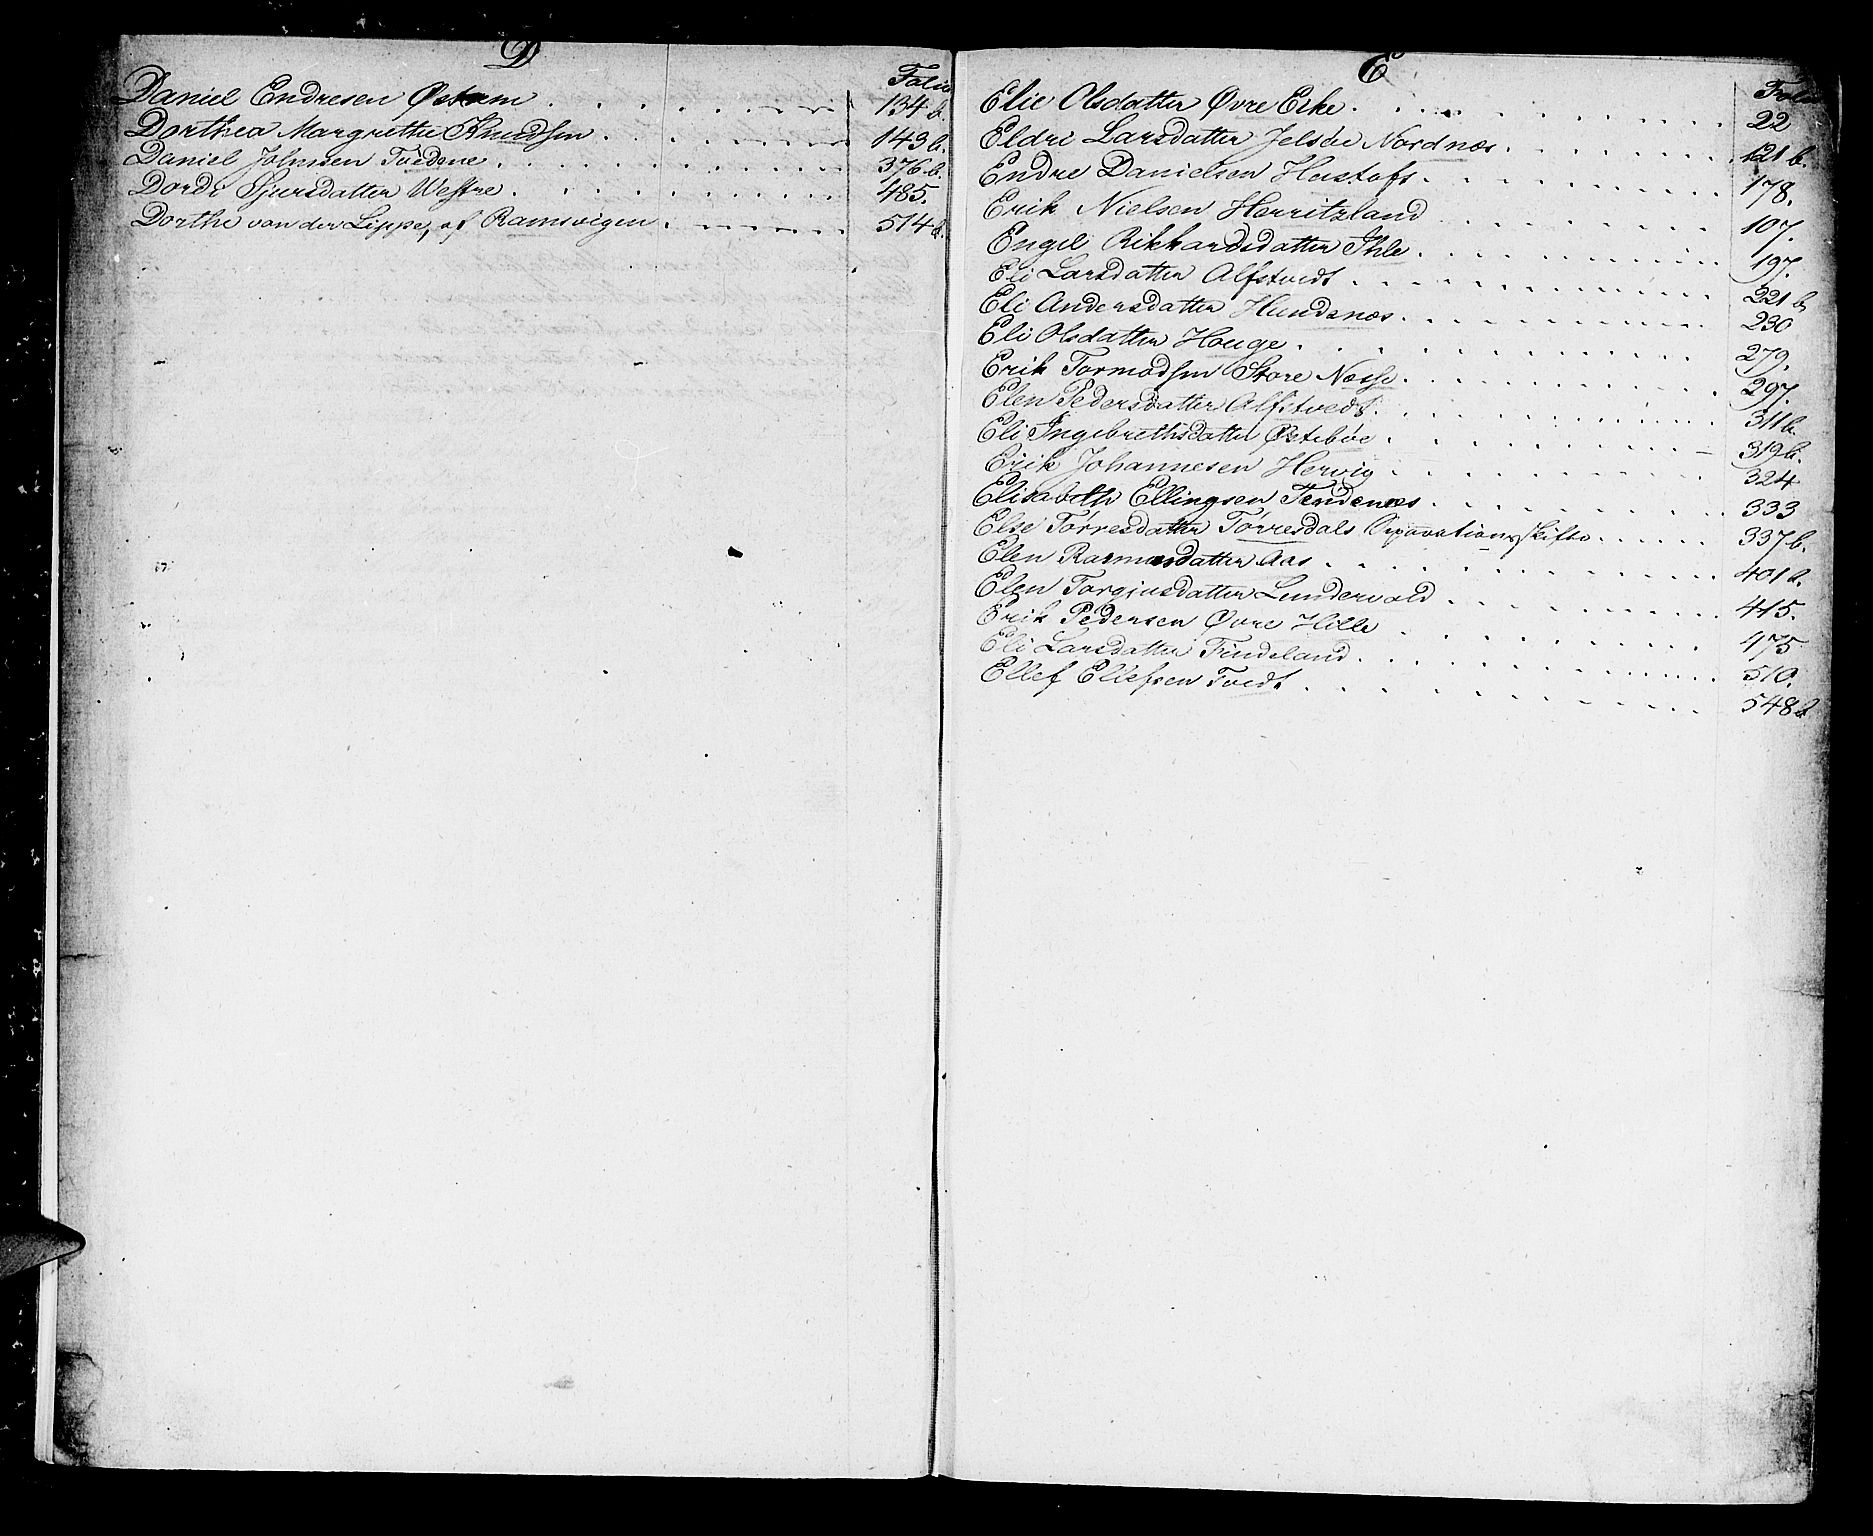 D
Folio
Daniel Endresen Østrem 134 b.
Dorthea Margrethe Knudsen 143 b.
Daniel Johnsen Tvedene 376 b.
Dorde Sjursdatter Westre 485.
Dorthe van der Lippe, af Ramsvigen 514 b.
E
Folio
Elie Olsdatter Øvre Eike 22
Eldri Larsdatter Jelsøe Nordnæs 121 b.
Endre Danielsen Hustoft 178.
Erik Nielsen Herritzland 107.
Engel Rikkardsdatter Ihle 197.
Eli Larsdatter Alfstvedt 221 b
Eli Andersdatter Hundsnæs 230
Eli Olsdatter Houge 279.
Erik Tormodsen Store Næsse 297.
Elen Pedersdatter Alfstvedt 311 b
Eli Ingebrethsdatter Østebøe 319 b.
Erik Johannesen Hervig 324
Elisabeth Ellingsen Tendenæs 333
Else Tørresdatter Tørresdals Separationsskifte 337 b.
Elen Rasmusdatter Aas 401 b.
Elen Torgiusdatter Lundervold 415.
Erik Pedersen Øvre Hille 475
Eli Larsdatter Findeland 510.
Ellef Ellefsen Tvedt 548 b